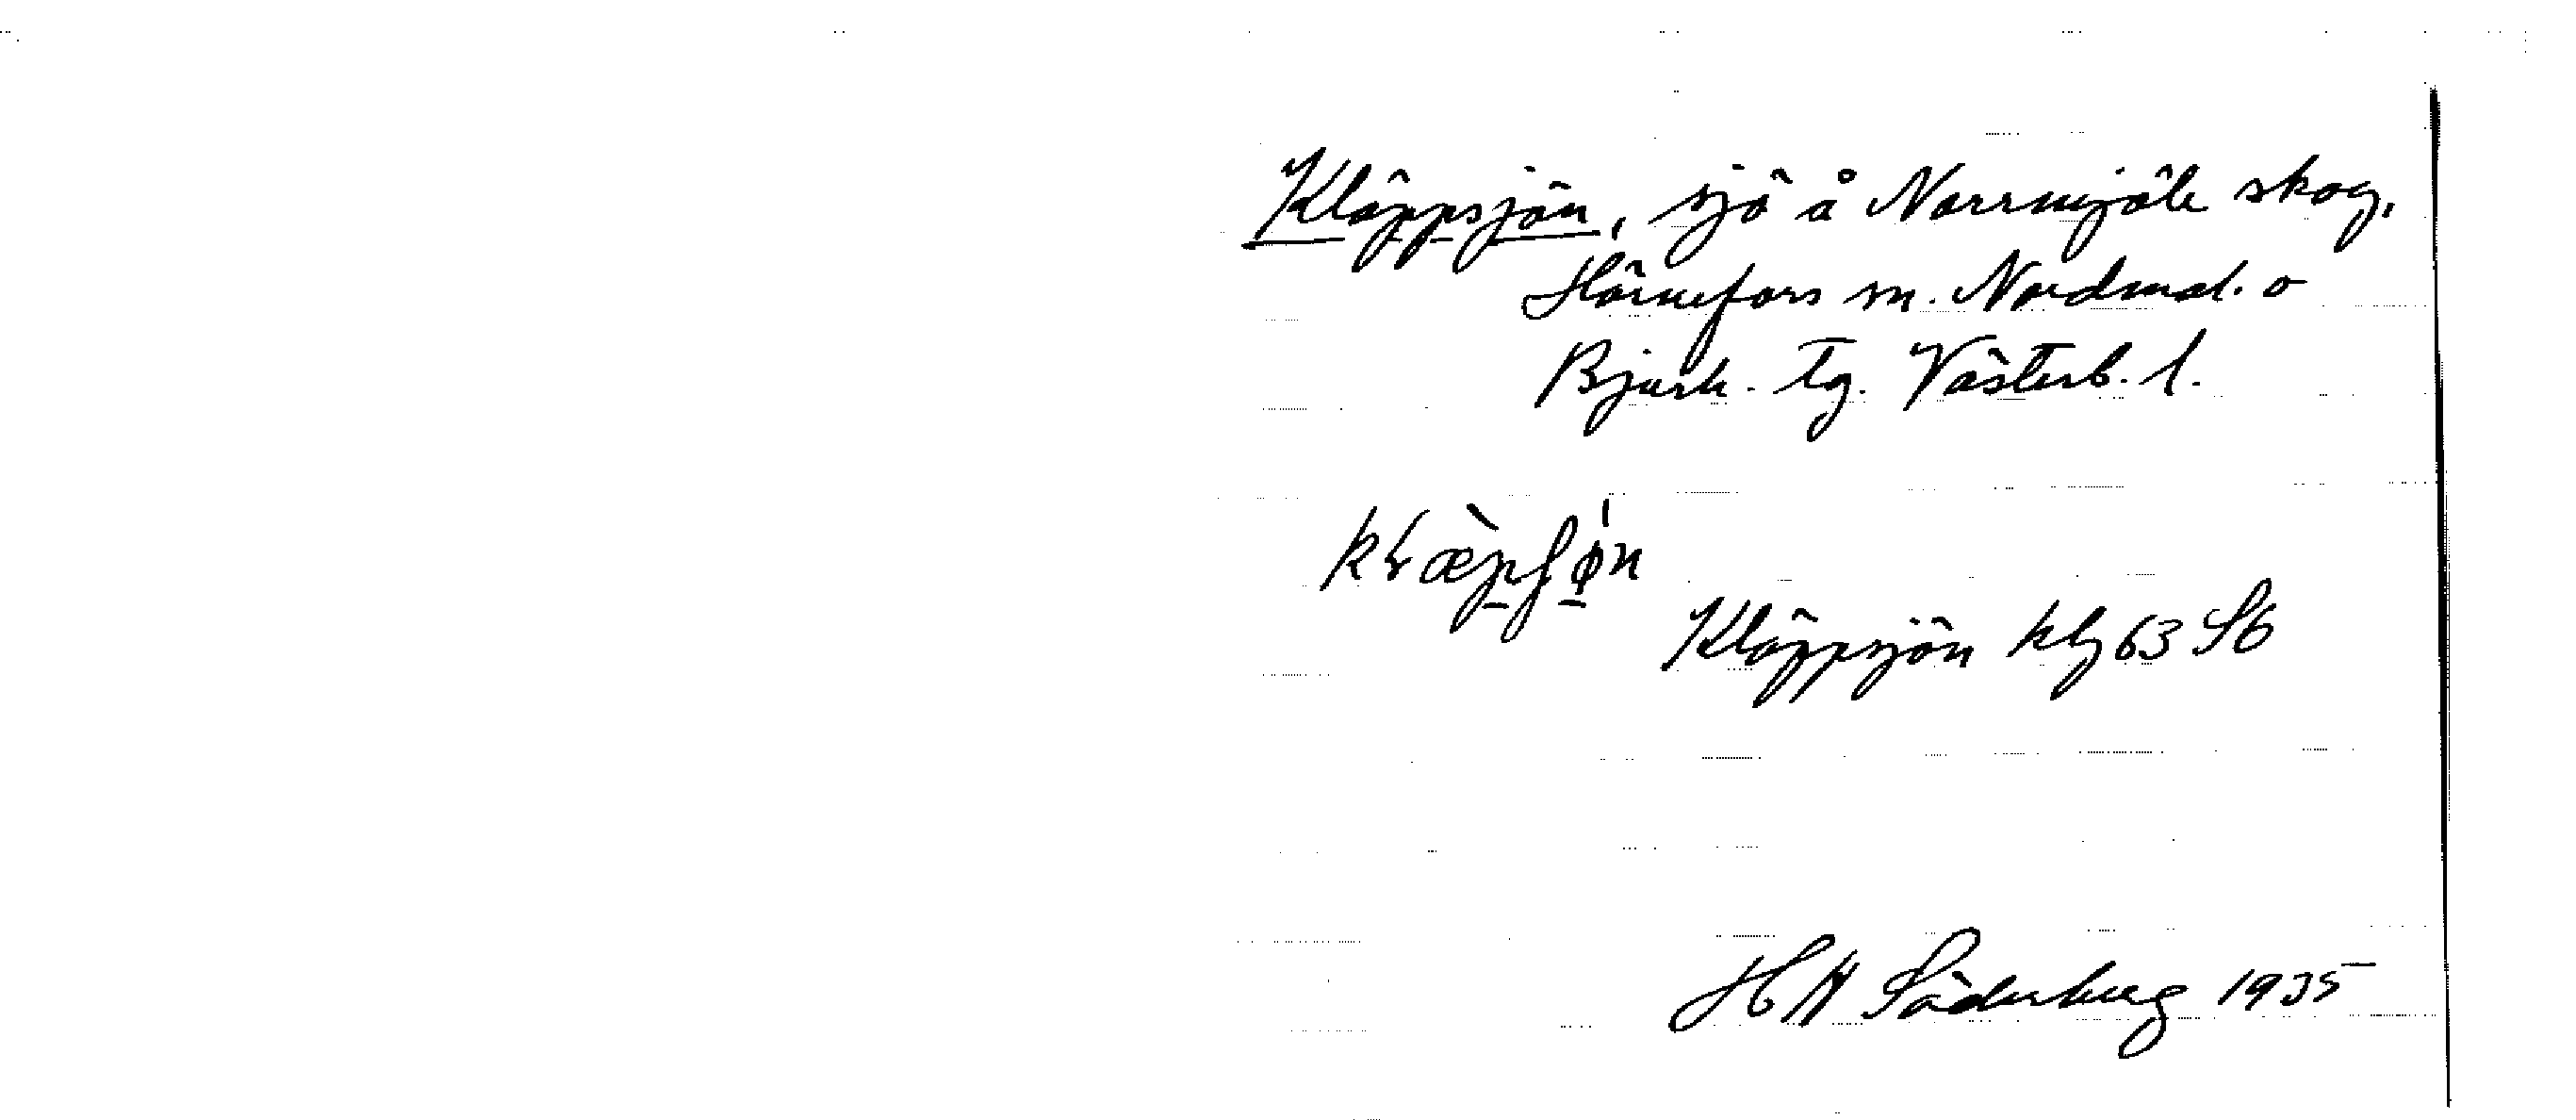 Kläppsjön, sjö å Norrmjöle skog,
Hörnefors sn. Nordmal. o
Bjurh. tg. Västerb. l.
Kläppsjön kbl 63 S6
H H Söderberg 1935